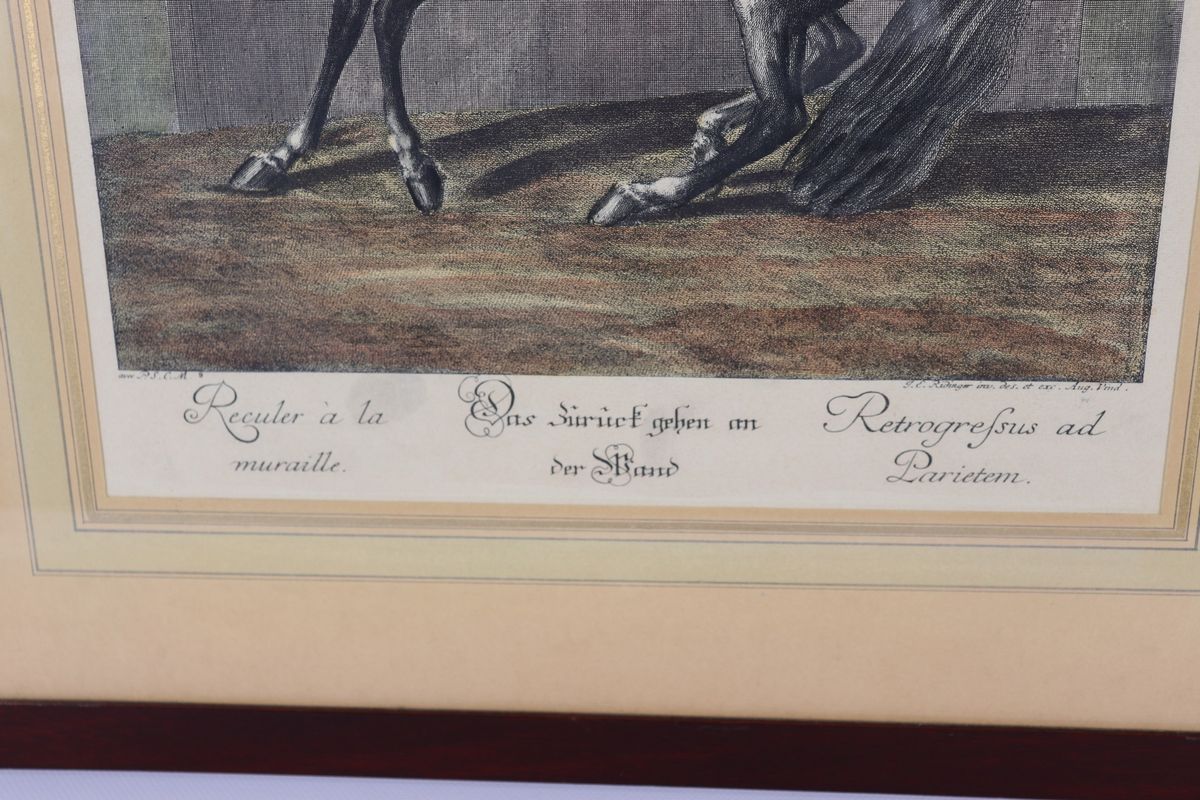 avec P. S. C. M.
J. E. Ridinger inv. des. et exc. Aug. Vind.
Reculer à la
muraille.
Das Zurück gehen an
der Wand
Retrogreſsus ad
Parietem.